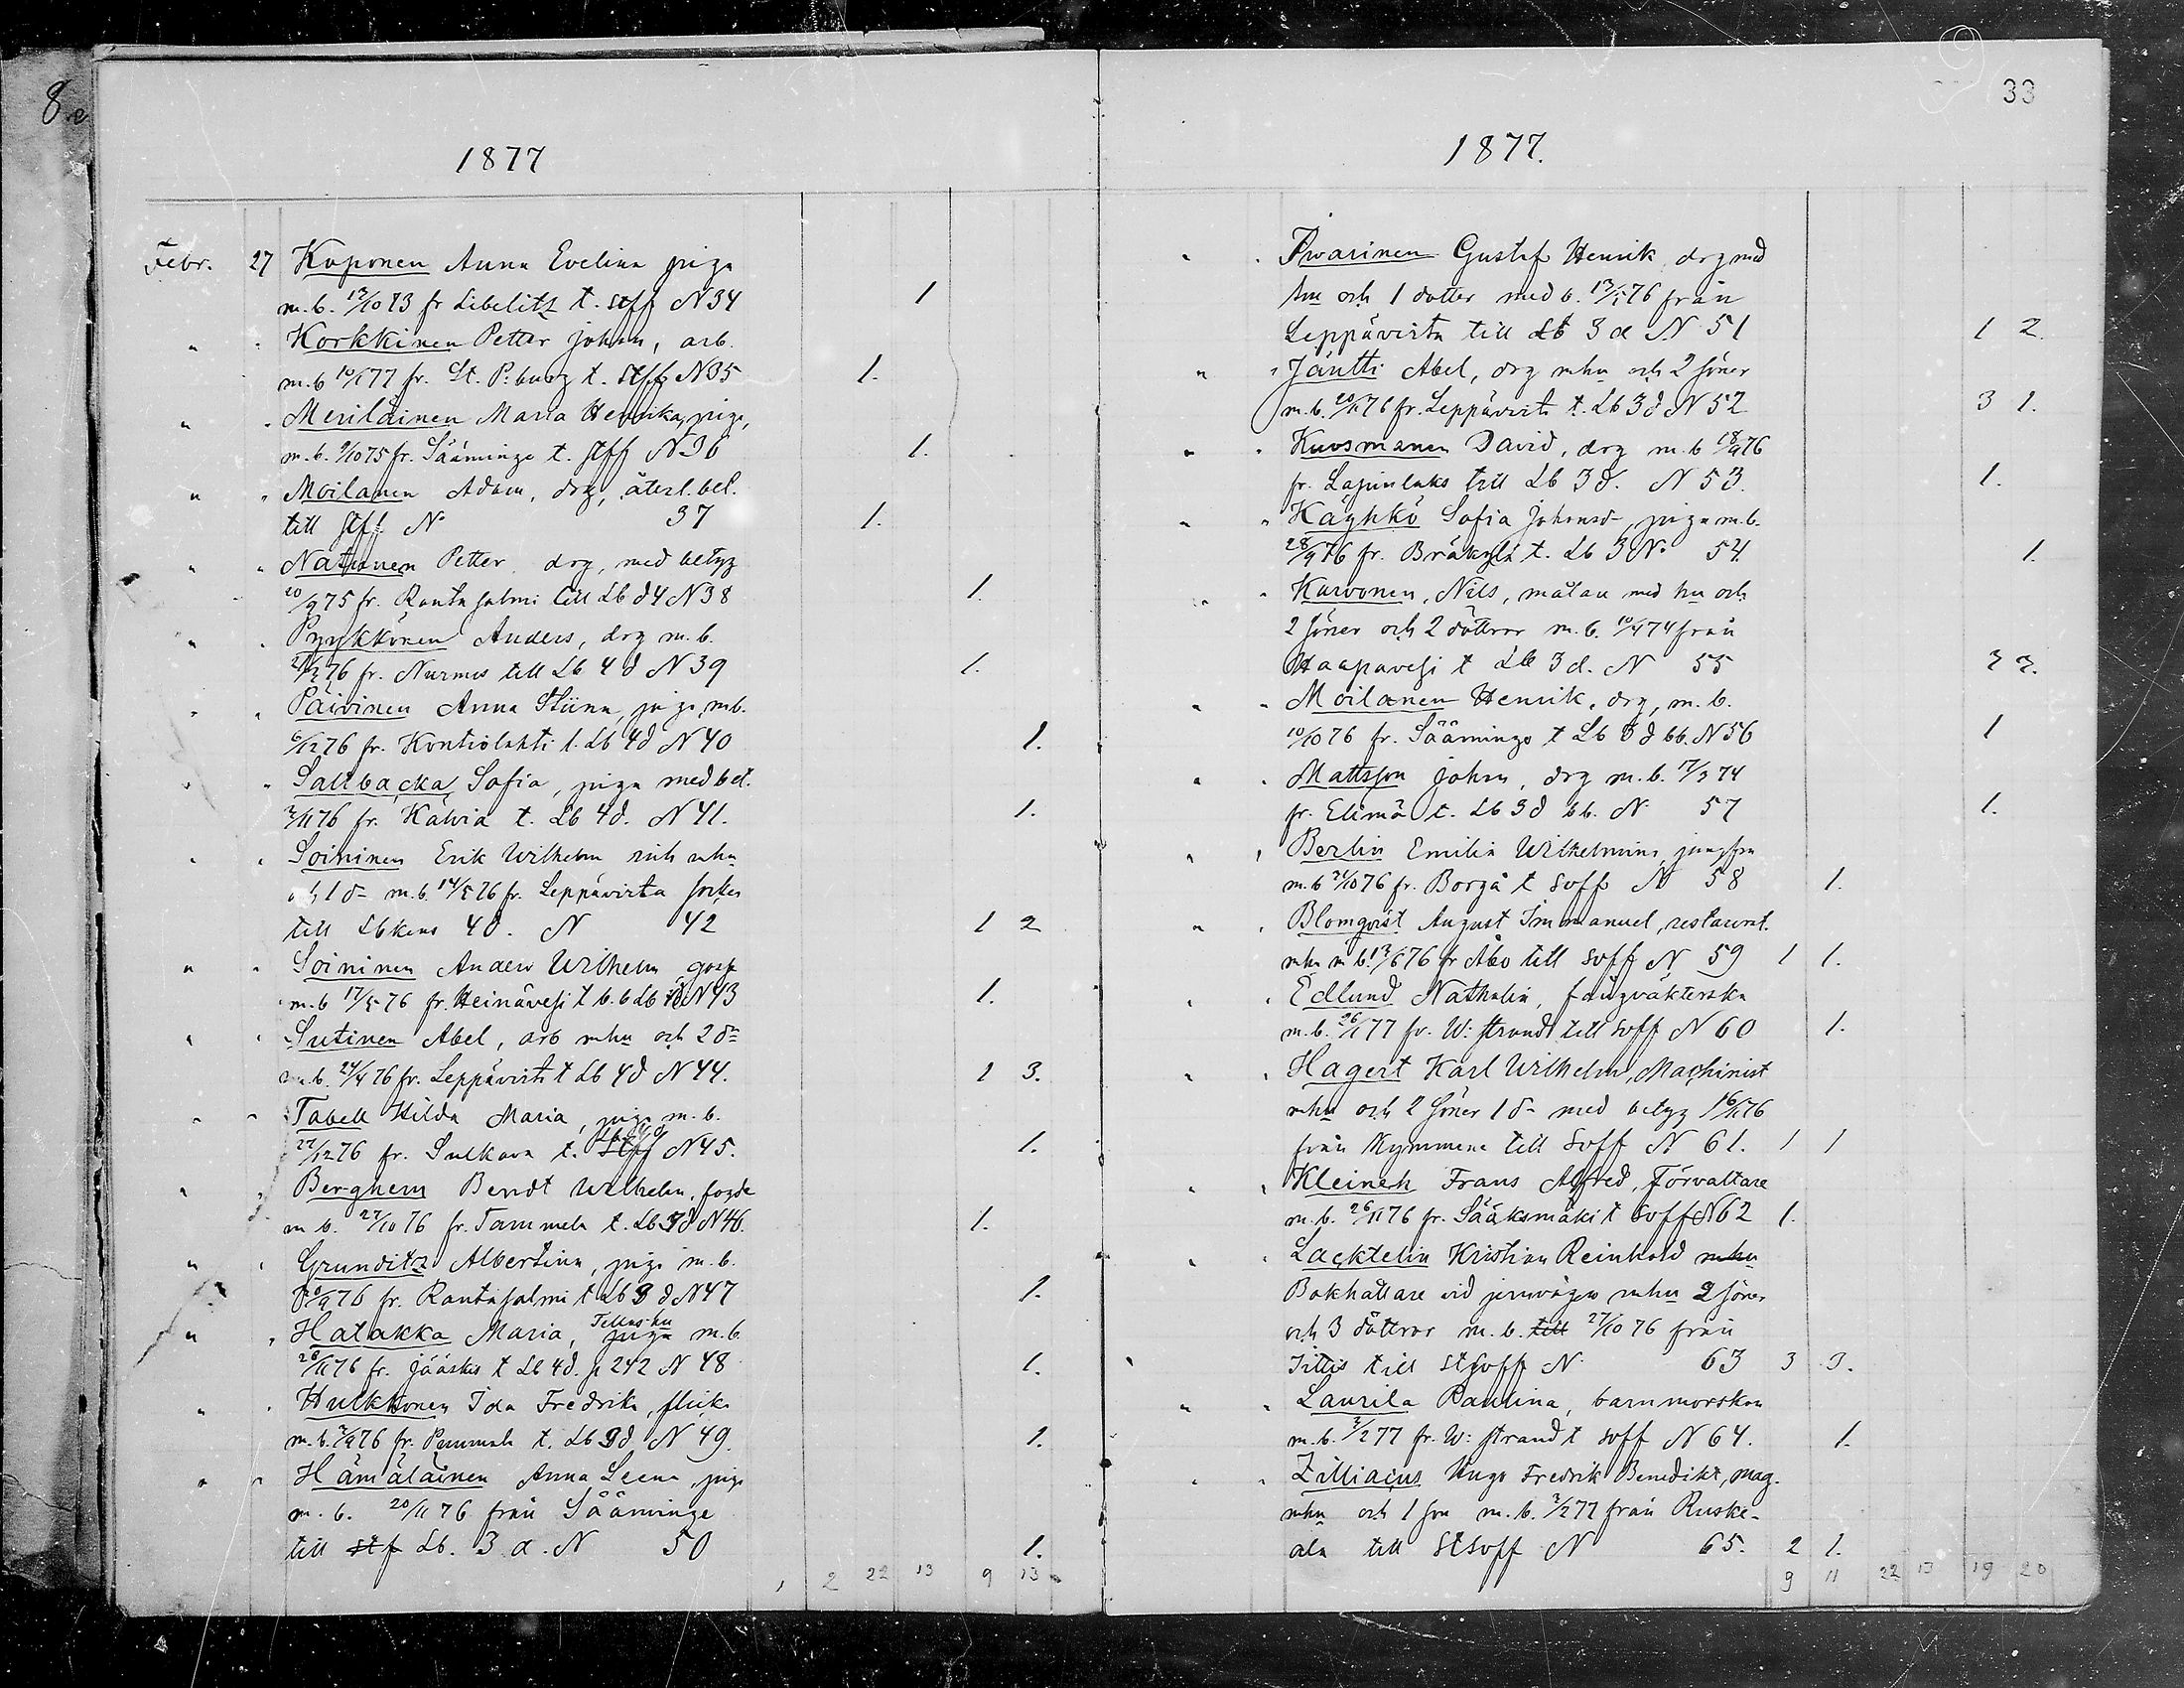 8
33
1877
Febr. 27 Koponen Anna Evelina piga
m.b. 13/10 73 fr Libelitz t. stff N 34 1
" " Korkkinen Petter Johan, arb.
m.b 10/1 77 fr. St. P:burg t. stff N 35 1.
" " Meriläinen Maria Henrika, piga,
m.b. 9/10 75 fr. Sääminge t. stff N 36 1.
" " Moilanen Adam, drg, återl. bet.
till stff N 37 1.
" " Natunen Petter drg, med betyg
20/9 75 fr. Rantasalmi till Lb d 4 N 38 1.
" " Pyykkönen Anders, drg m.b.
76 fr. Nurmes till Lb 4 d N 39 1.
" " Päivinen Anna Stiina, piga, m.b.
6/12 76 fr. Kontiolahti t. Lb 4d N 40 1.
" " Saltbacka, Sofia, piga med bet.
3/11 76 fr. Kälviä t. Lb 4d. N 41. 1.
" " Soininen Erik Wilhelm mhu
och 1 d- m.b. 14/5 76 fr. Leppävirta
till Lbkens 4d. N 42 1 2
" " Soininen Anders Wilhelm goss
m.b 17/5 76 fr. Heinävesi t b.b Lb N 43 1.
" " Sutinen Abel, arb mhu och 2 d-
m.b. 24/4 76 fr. Leppävirta t Lb 4d N 44. 1 3.
" " Tabell Hilda Maria, piga m.b.
27/12 76 fr. Sulkava t. stff N 45. 1.
" " Berghem Berndt Wilhelm, fogde
m b. 27/10 76 fr. Tammela t. Lb 3d N 46. 1.
" " Grunditz Albertina, piga m.b.
76 fr. Rantasalmi t Lb 3 d N 47 1.
" " Hatakka Maria, piga m.b.
28/11 76 fr. Jääskis t Lb 4d. p 242 N 48 1.
" " Hulkkonen Ida Fredrika, flicka
m.b. 76 fr. t. Lb 3d N 49. 1.
" " Hämäläinen Anna Leena, piga
m. b. 20/11 76 från Sääminge
till st f Lb. 3 d. N 50 1.
1 2 22 13 9 13
1877.
" " Iwarinen Gustaf Henrik, drg med
hu och 1 dotter med b. 13/5 76 från
Leppävirta till Lb 3 d N 51 1 2
" " Jäntti Abel, drg mhu och 2 söner
m.b. 20/11 76 fr. Leppävirta t. Lb 3d N 52 3 1.
" " Kuosmanen David, drg m.b 18/9 76
fr. Lapinlaks till Lb 3 d. N 53. 1.
" " Käyhkö Sofia Johansd-, piga m.b.
28/9 76 fr. Bräkylä t. Lb 3 N. 54. 1.
" " Karvonen, Nils, målare med hu och
2 söner och 2 döttrar m.b. 10/4 74 från
Haapavesi t Lb 3 d. N 55 3 3.
" " Moilanen Henrik, drg, m.b.
10/10 76 fr. Sääminge t Lb 3 d bb. N 56 1
" " Mattsson Johan, drg m.b. 17/3 74
fr. Elimä t. Lb 3d bb. N. 57 1.
" " Berlin Emilia Wilhelmina, jungfru
m.b 24/10 76 fr. Borgå t soff N 58 1.
" " Blomqvist August Immanuel, restaurat.
mhu m b. 13/6 76 fr Åbo till soff N 59 1 1.
" " Edlund Nathalia, fångväkterska
m.b. 26/1 77 fr. W:strand till soff N 60 1.
" " Hagert Karl Wilhelm, Machinist
mhu och 2 söner 1 d- med betyg 16/11 76
från Kymmene till soff N 61. 1 1
" " Kleineh Frans Alfred, Förvaltare
m.b. 26/11 76 fr. Sääksmäki t soff N 62 1.
" " Lacktelin Kristian Reinhold mhu
Bokhållare vid jernvägen mhu 2 söner
och 3 döttrar m.b. till 27/10 76 från
Iittis till St soff N 63 3 3.
" " Laurila Paulina, barnmorskan
m.b. 3/2 77 fr. W:strand t soff N 64. 1.
" " Zilliacus Hugo Fredrik Benedikt, mag.
mhu och 1 son m.b. 3/2 77 från Ruske-
ala till St soff N 65. 2 1.
9 11 22 13 19 20